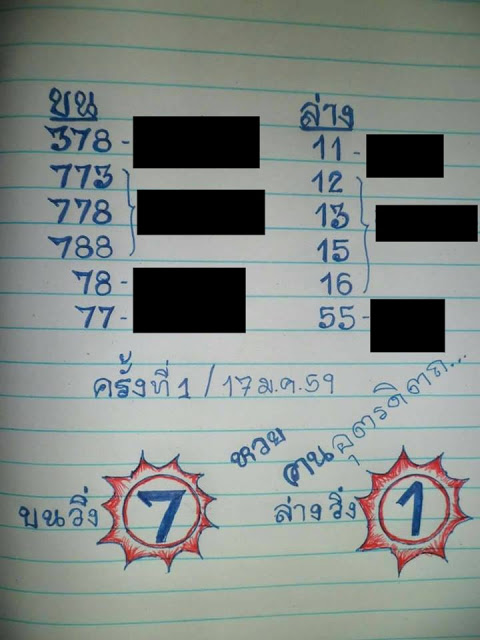 บน
378-
773
778
788
78-
77-
ล่าง
11-
12
13
15
16
55-
ครั้งที่ 1 / 17 ม.ค.59
หวย
คนอุตรดิตถ...
บนวิ่ง 7
ล่างวิ่ง 1